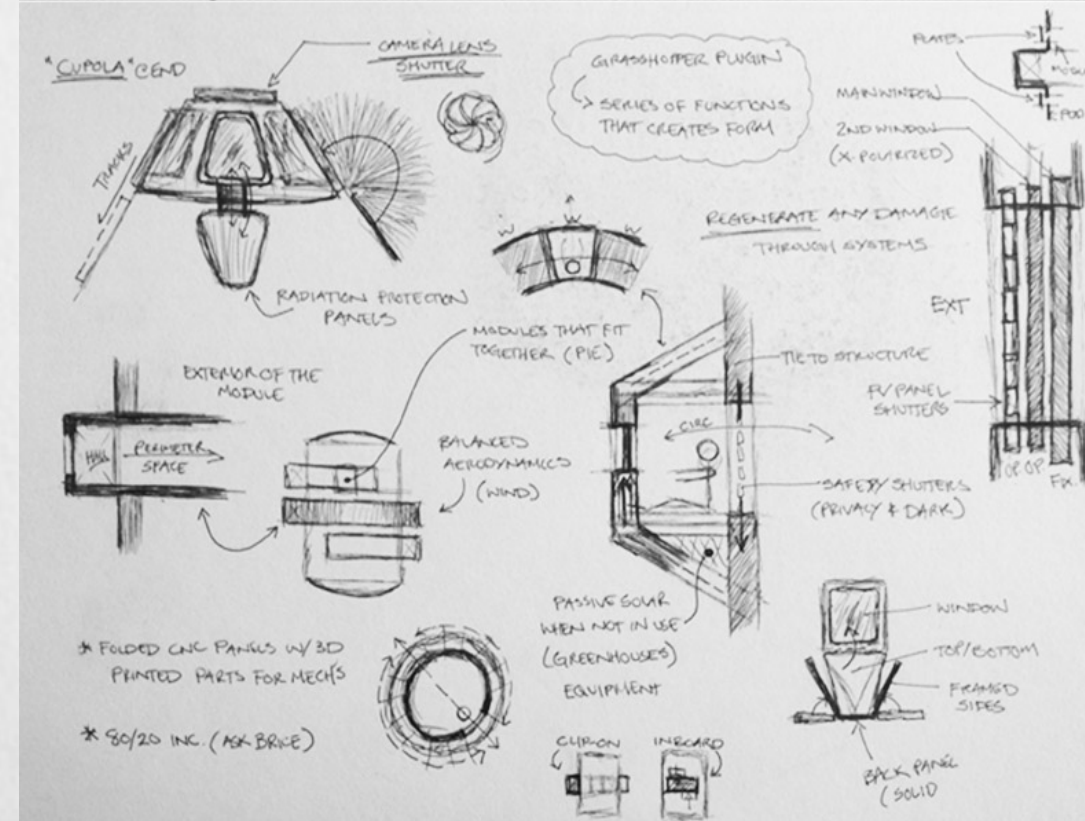 "CUPOLA" @ END
CAMERA LENS
SHUTTER
TRACKS
RADIATION PROTECTION
PANELS
GRASSHOPPER PLUGIN
SERIES OF FUNCTIONS
THAT CREATES FORM
PLATES
MAIN WINDOW
2ND WINDOW
(X-POLARIZED)
REGENERATE ANY DAMAGE
THROUGH SYSTEMS
W
W
W
EXT
MODULES THAT FIT
TOGETHER (PIE)
EXTERIOR OF THE
MODULE
HALL
PERIMETER
SPACE
BALANCED
AERODYNAMICS
(WIND)
TIE TO STRUCTURE
CIRC
PV PANEL
SHUTTERS
OP. OP.
FIX.
SAFETY SHUTTERS
(PRIVACY & DARK)
PASSIVE SOLAR
WHEN NOT IN USE
(GREENHOUSES)
EQUIPMENT
* FOLDED CNC PANELS W/ 3D
PRINTED PARTS FOR MECH'S
* 80/20 INC. (ASK BRICE)
CLIP-ON
INBOARD
WINDOW
TOP/BOTTOM
FRAMED
SIDES
BACK PANEL
(SOLID